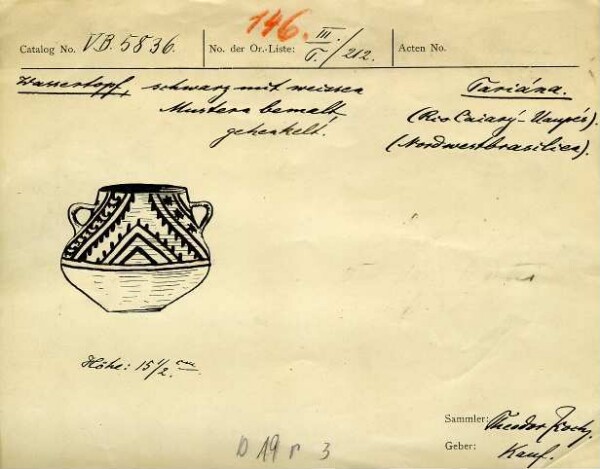 146.
Catalog No. V.B. 5836. No. der Or.-Liste: III./T./212. Acten No.
Wassertopf, schwarz mit weissen Tariána.
Mustern bemalt, (Rio Caiarý-Uaupés).
gehenkelt. (Nordwestbrasilien).
Höhe: 15 1/2 cm.
Sammler: Theodor Koch.
Geber: Kauf.
D 19 r 3